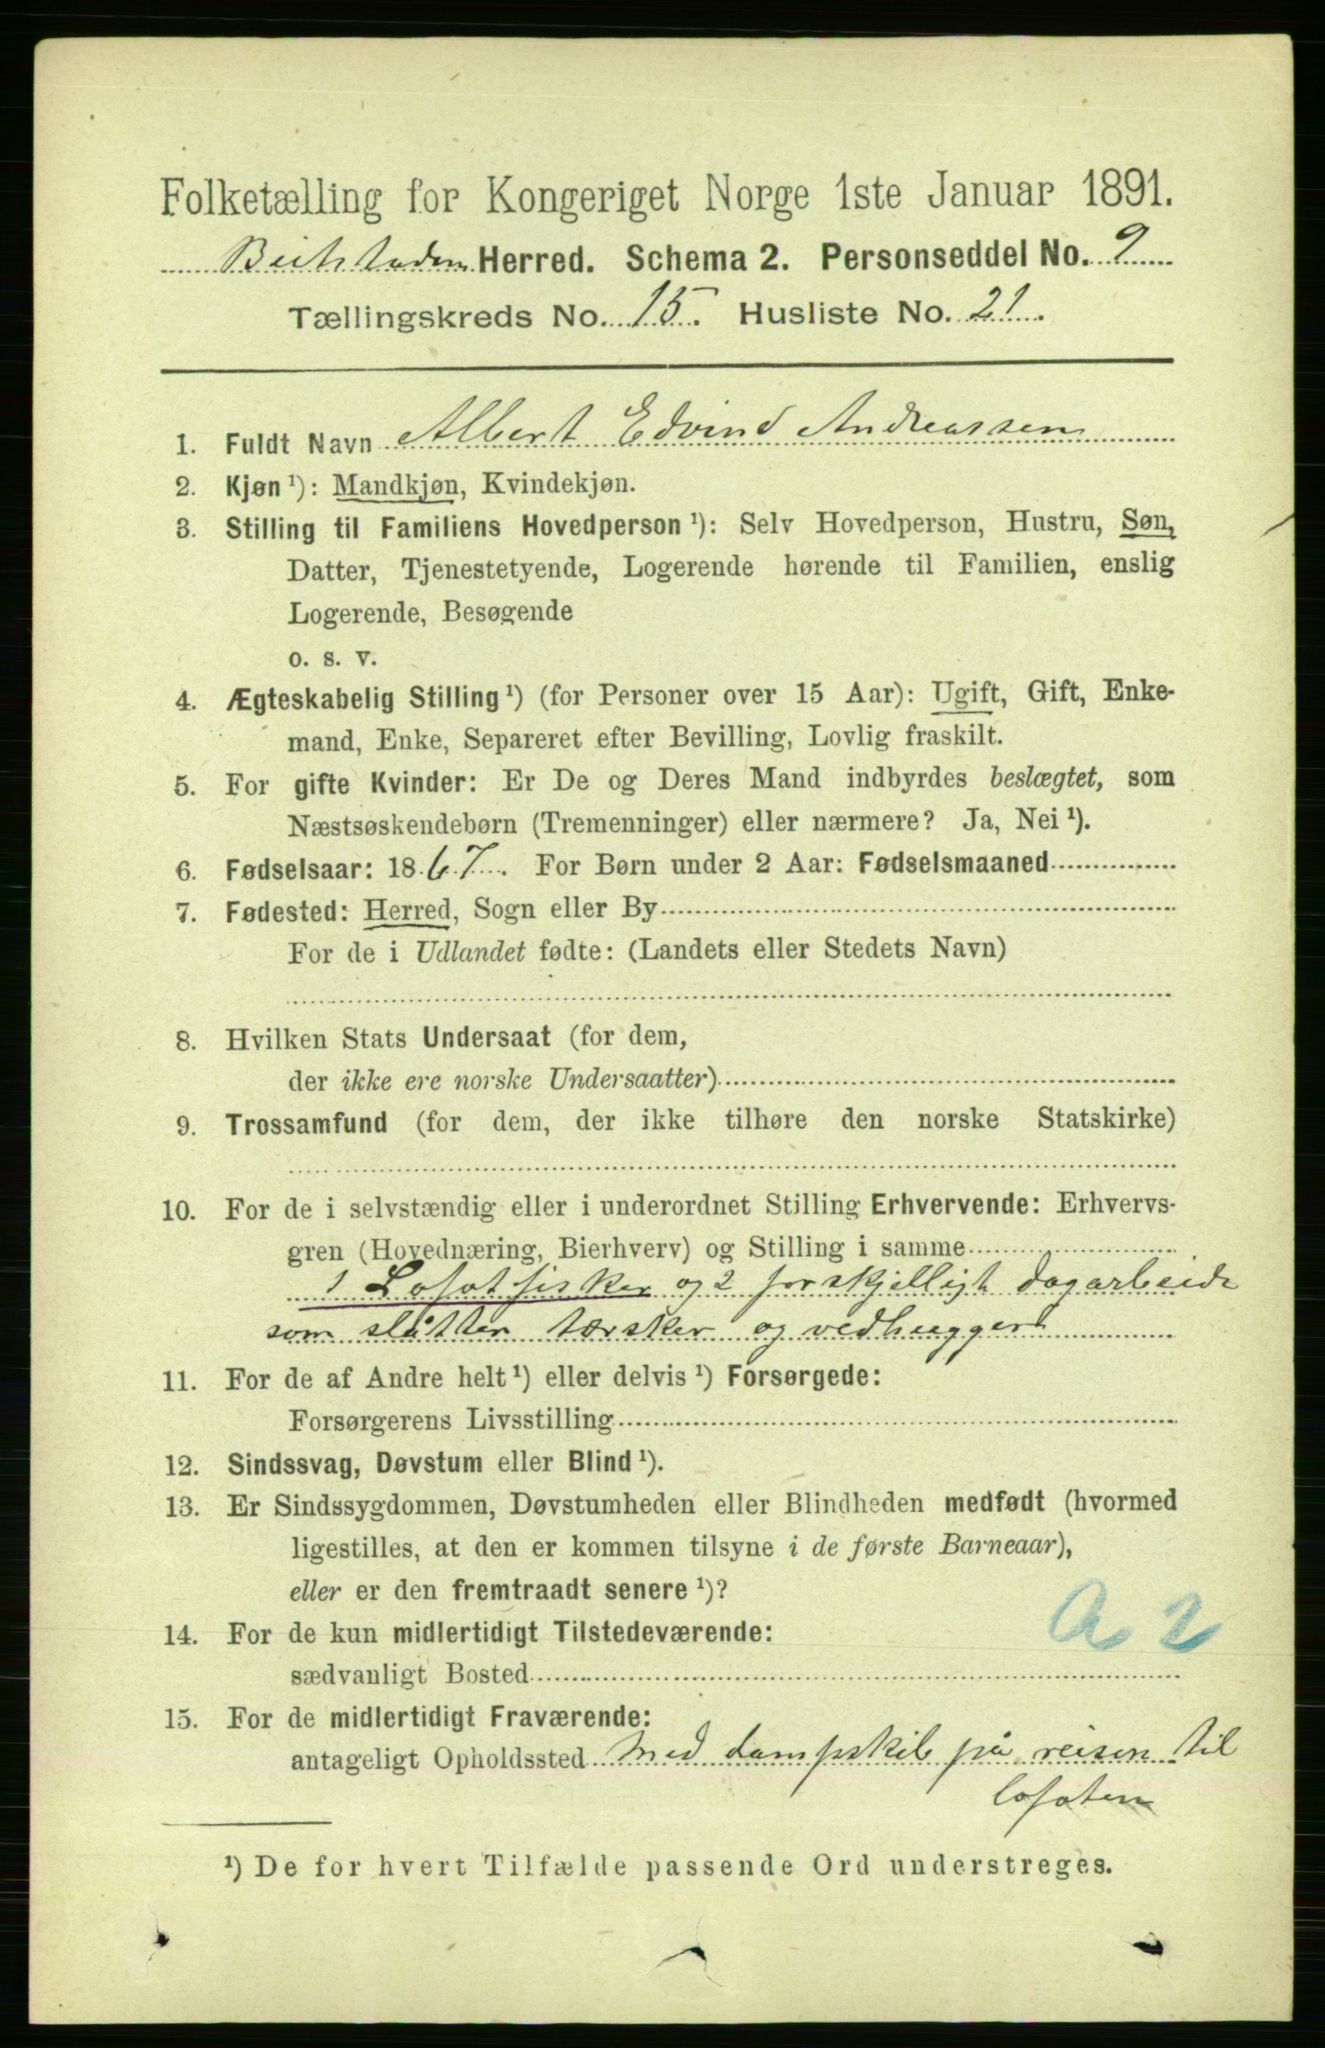 Folketælling for Kongeriget Norge 1ste Januar 1891.
Beitstaden Herred. Schema 2. Personseddel No. 9
Tællingskreds No. 15. Husliste No. 21.
1. Fuldt Navn Albert Edvind Andreassen
2. Kjøn ¹): Mandkjøn, Kvindekjøn.
3. Stilling til Familiens Hovedperson ¹): Selv Hovedperson, Hustru, Søn,
Datter, Tjenestetyende, Logerende hørende til Familien, enslig
Logerende, Besøgende
o. s. v.
4. Ægteskabelig Stilling ¹) (for Personer over 15 Aar): Ugift, Gift, Enke-
mand, Enke, Separeret efter Bevilling, Lovlig fraskilt.
5. For gifte Kvinder: Er De og Deres Mand indbyrdes beslægtet, som
Næstsøskendebørn (Tremenninger) eller nærmere? Ja, Nei ¹).
6. Fødselsaar: 1867. For Børn under 2 Aar: Fødselsmaaned
7. Fødested: Herred, Sogn eller By
For de i Udlandet fødte: (Landets eller Stedets Navn)
8. Hvilken Stats Undersaat (for dem,
der ikke ere norske Undersaatter)
9. Trossamfund (for dem, der ikke tilhøre den norske Statskirke)
10. For de i selvstændig eller i underordnet Stilling Erhvervende: Erhvervs-
gren (Hovednæring, Bierhverv) og Stilling i samme
1 Lofotfisker og 2 forskjelligt dagarbeide
som slåtter tærsker og vedhugger
11. For de af Andre helt ¹) eller delvis ¹) Forsørgede:
Forsørgerens Livsstilling
12. Sindssvag, Døvstum eller Blind ¹).
13. Er Sindssygdommen, Døvstumheden eller Blindheden medfødt (hvormed
ligestilles, at den er kommen tilsyne i de første Barneaar),
eller er den fremtraadt senere ¹)?
A 2
14. For de kun midlertidigt Tilstedeværende:
sædvanligt Bosted
15. For de midlertidigt Fraværende:
antageligt Opholdssted Med dampskib på reisen til
lofoten
¹) De for hvert Tilfælde passende Ord understreges.